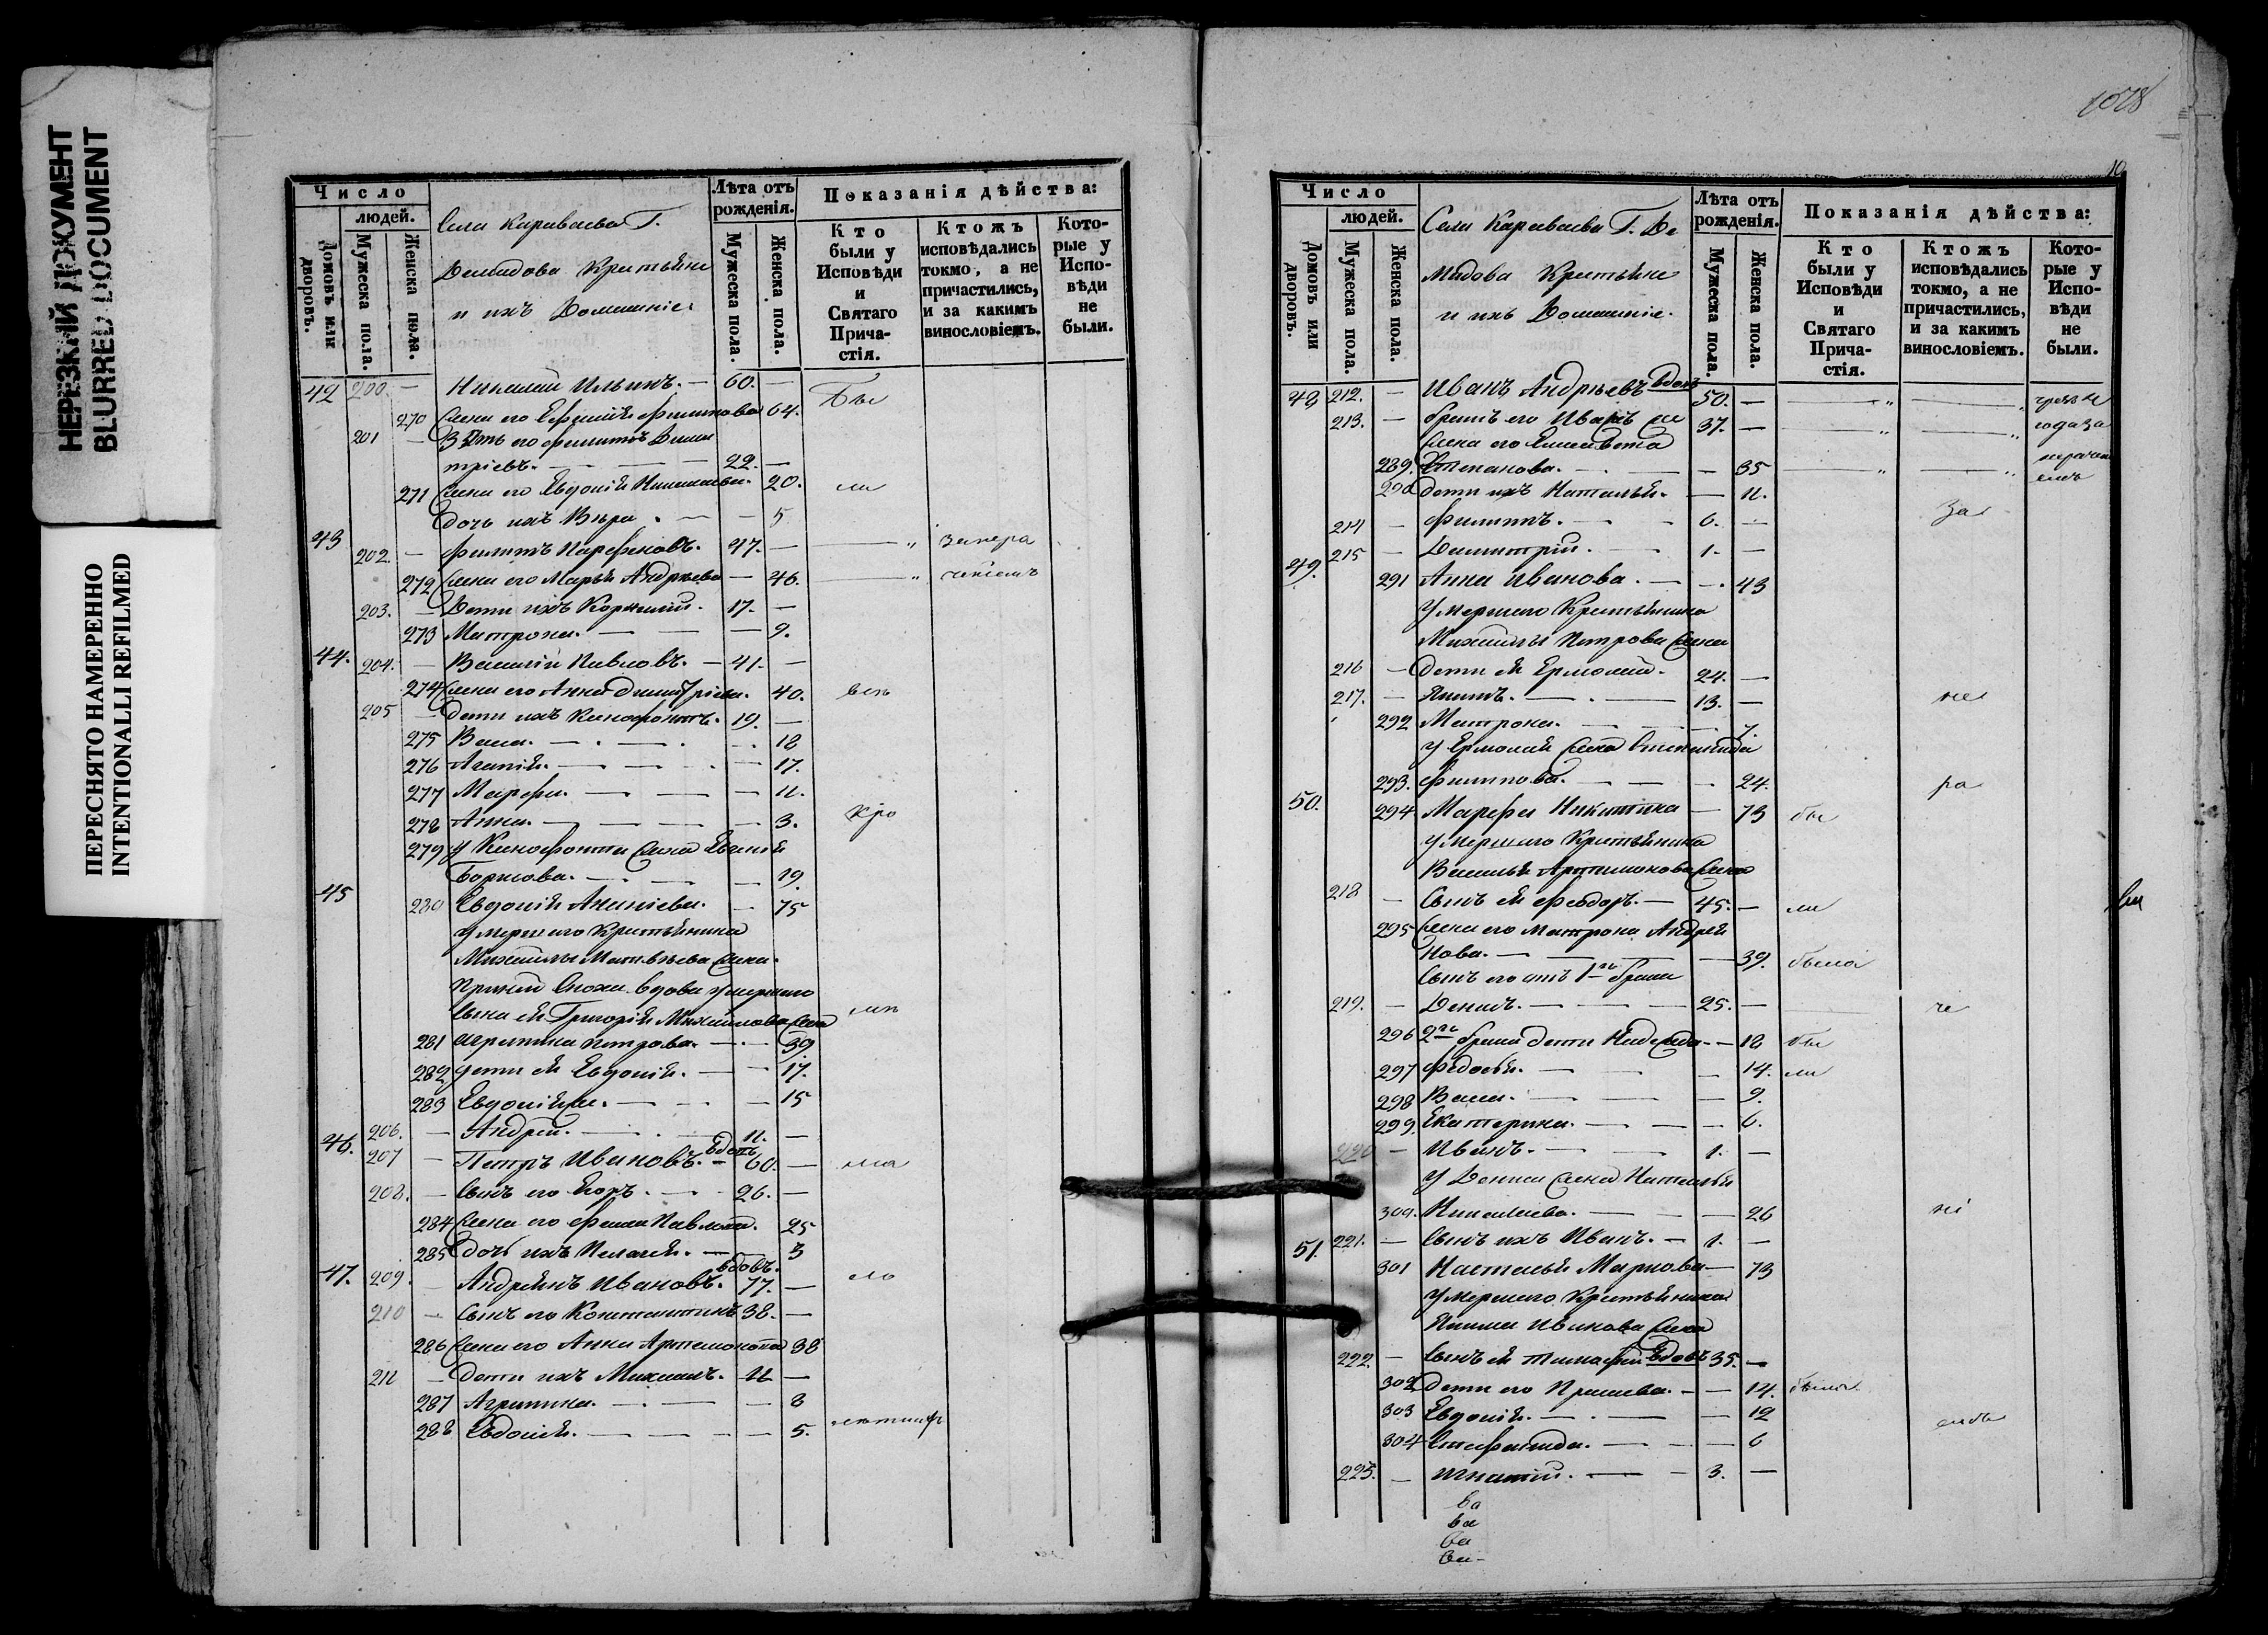 НЕРЕЗКИЙ ДОКУМЕНТ
BLURRED DOCUMENT
ПЕРЕСНЯТО НАМЕРЕННО
INTENTIONALLI REFILMED
Число
людей.
Домовъ или дворовъ.
Мужеска пола.
Женска пола.
Села Караваева Г.
Демидова Крестьяне
и ихъ Домашніе.
Лѣта отъ рожденія.
Мужеска пола.
Женска пола.
Показанія дѣйства:
Кто были у Исповѣди и Святаго Причастія.
Ктожъ исповѣдались токмо, а не причастились, и за какимъ винословіемъ.
Которые у Исповѣди не были.
42 200. — Николай Ильинъ. — 60. — Бы
270 Жена его Ефимія Филипова 64.
201 — Зять его Филипъ Дими
тріевъ. — 22. —
271 Жена его Евдокія Николаева. 20. ли
Дочь ихъ Вѣра. — — 5
43 202. — Филипъ Парфеновъ. 47. — — „ за нера
272 Жена его Марья Андреева — 46. — „ ченіемъ
203. — Дети ихъ Корнилій. 17. —
273 Матрона. — — — 9.
44. 204. — Василій Павловъ. — 41. —
274 Жена его Анна Димитріева. 40. всѣ
205 — Дети ихъ Ксенофонтъ. 19. —
275 Васса. — — 18
276 Агапія. — — — 17.
277 Марфа. — — — 11.
278 Анна. — — — 3. кро
279 У Ксенофонта Жена Евгенія
Борисова. — — 19.
45 280 Евдокія Ананіева. — 75
Умершаго Крестьянина
Михаилы Матвѣева Жена.
Сноха вдова умершаго
Сына ея Григорія Михайлова Жена
281 Агрипина Петрова. — 39
282 Дети ея Евдокія. — — 17.
283 Евдокія же. — — — 15
206. — Андрей. — — 11. —
46. 207 — Петръ Ивановъ. вдовъ — 60. —
208. — Сынъ его Егоръ. — 26. —
284 Жена его Павлова. 25
285 Дочь ихъ Пелагія. — 3
47. 209. — Андреянъ Ивановъ. вдовъ. 77. —
210 — Сынъ его Константинъ 38. —
286 Жена его Анна Артемонова 38
211 — Дети ихъ Михаилъ. 11 —
287 Агрипина. — — — 8
288 Евдокія. — — — 5.
1078
10
Число
людей.
Домовъ или дворовъ.
Мужеска пола.
Женска пола.
Села Караваева Г. Де
мидова Крестьяне
и ихъ Домашніе.
Лѣта отъ рожденія.
Мужеска пола.
Женска пола.
Показанія дѣйства:
Кто были у Исповѣди и Святаго Причастія.
Ктожъ исповѣдались токмо, а не причастились, и за какимъ винословіемъ.
Которые у Исповѣди не были.
48 212. — Иванъ Андреевъ вдовъ 50. — — „ — „
213. — Братъ его Иванъ же 37. — — „ — „ года за
Жена его Елисавета
289. Степанова. — — 35 — „ — „ нераченіемъ
290 Дети ихъ Наталья. — 11.
214 — Филипъ. — — 6. — За
215 — Димитрій. — 1. —
49. 291 Анна Иванова. — — 43
Умершаго Крестьянина
Михаилы Петрова Жена
216 — Дети ея Ермолай. 24. —
217. — Якимъ. — — 13. — не
292 Матрона. — — 7.
У Ермолая Жена Степанида
293. Филипова. — — 24.
ра
50. 294 Марфа Никитина — 73 бы
Умершаго Крестьянина
Василья Артемонова Жена
218 — Сынъ ея Феодоръ. — 45. — ли
295 Жена его Матрона Андрея
нова. — — — 39. была
Сынъ его отъ 1го брака
219. — Денисъ. — — — 25. — — че
296 2го брака дети Надежда — — 18 бы
297 Федосья. — — — 14. ли
298 Васса. — — — 9.
299. Екатерина. — — — 6.
220 — Иванъ. — — 1. —
У Дениса Жена Наталья
300. Николаева. — — — 26 ні
51. 221. — Сынъ ихъ Иванъ. — 1. —
301 Настасья Маркова — 73
Умершаго Крестьянина
Якима Иванова Жена
222. — Сынъ ея Тимофей вдовъ 35. —
302 Дети его Прасковья. — — 14. были
303 Евдокія. — — — 12
емъ
304 Степанида. — — — 6
223. — Игнатій. — — 3. —
ва
ва
ва
ва